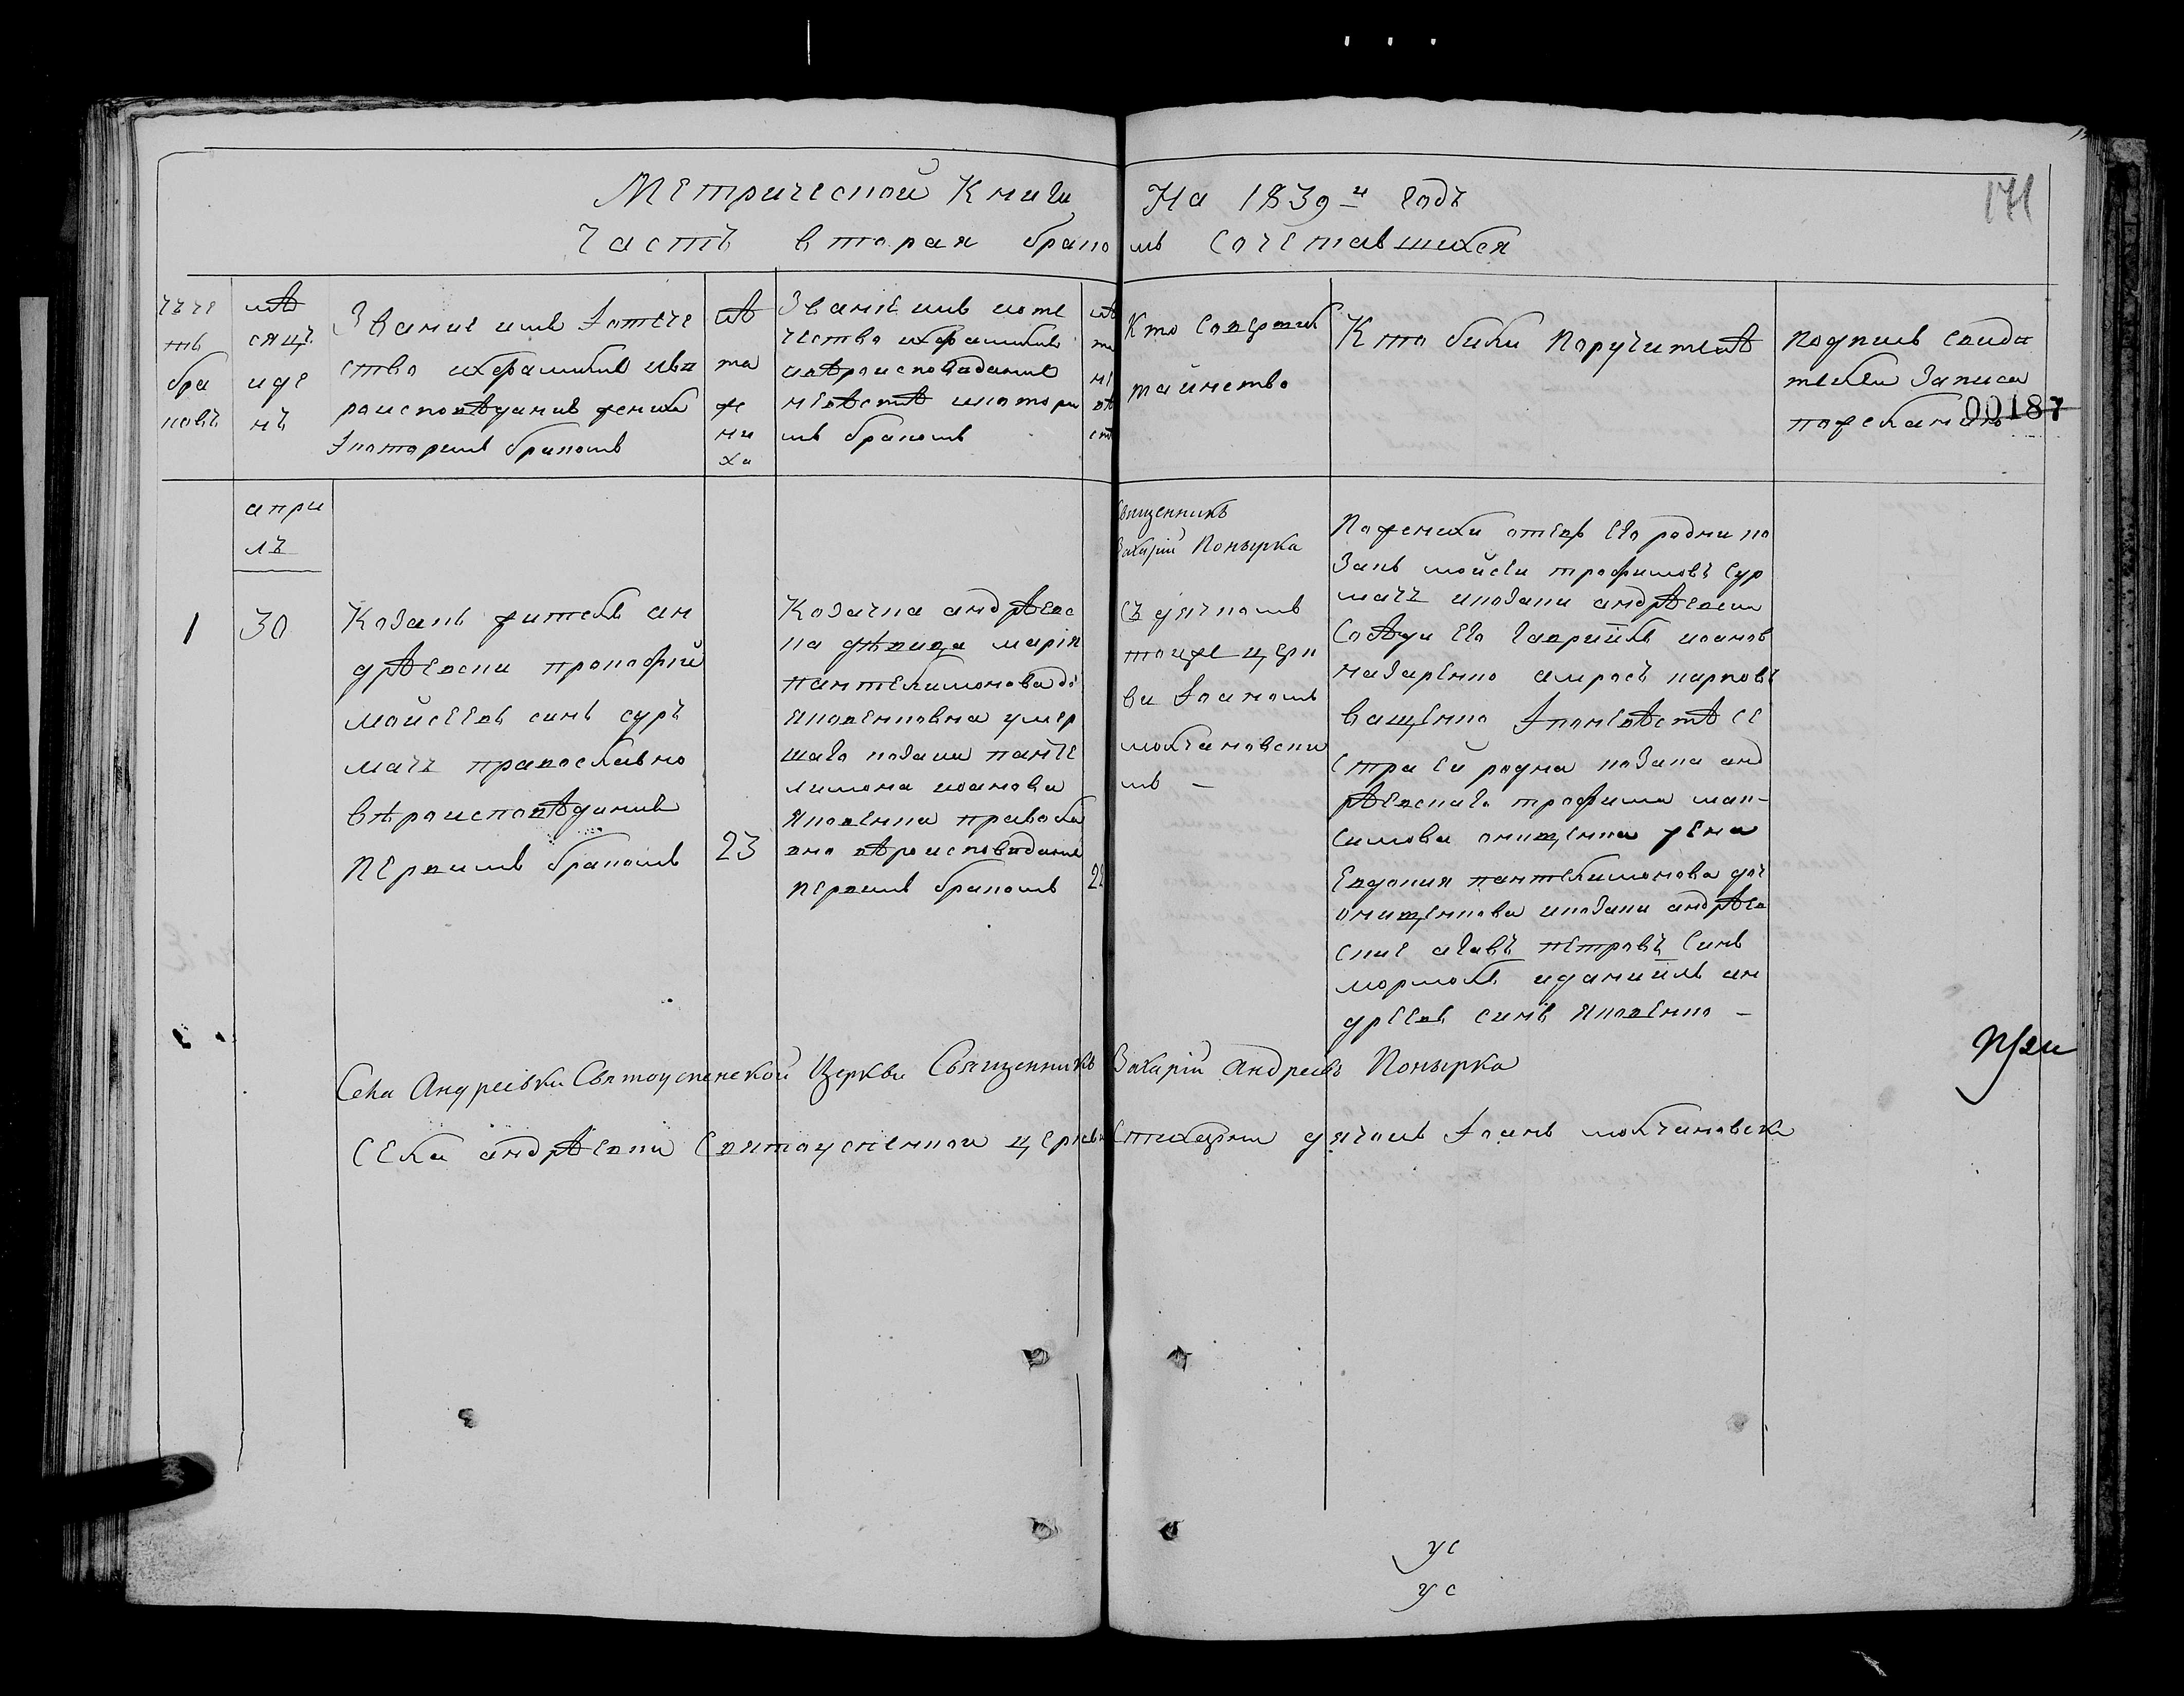 Метрической Книги На 1839й годъ
171
Часть вторая брако мъ сочетавшихся
счче
тъ
бра
ковъ
мѣ
сяцъ
иде
нъ
Звание имя Iотече
ство ихфамилия ивѣ
роисповѣдание жениха
Iкоторимъ бракомъ
лѣ
та
же
ни
ха
Звание имя иоте
чество ихфамилия
ивѣроисповидание
невѣстѣ икотори
мъ бракомъ
лѣ
та
не
вѣ
ст
Кто совершил
таинство
Кто били Поручителѣ
подпись свидѣ
телей Записа
пожеланию
00187
апри
лъ
1
30
Козакъ жителъ ан
дрѣевски прокофий
мойсеевъ синъ сур
мачъ православно
вѣроисповѣдания
первимъ бракомъ
23
Козачка андрѣевс
ка дѣвица мария
пантелимонова до
Яковенковна умер
шаго козака панте
лимона иоанова
Яковенка правосла
вно вѣроисповидания
первимъ бракомъ
22
Священникъ
Захарій Понырка
съ дячкомъ
тоиже церк
ви Iоаномъ
молчановски
мъ —
Поженихи отецъ Его родни ко
закъ мойсеи трофимовъ сур
мачъ икозаки андрѣевски
сосѣди Его гаврийлъ иоановъ
назаренко амросъ карповъ
ващенко Iпоневѣстѣ се
стра Ей родна козака анд
рѣевскаго трофима мак-
симова онищенка жена
Евдокия пантелимонова доч
онищенкова икозаки андрѣев
ские савъ петровъ синъ
мормоль иданийлъ ан
дреевъ синъ Яковенко —
Села Андреевки Святоуспенской Церкви Священникъ Захарій Андреевъ Понырка
Села андрѣевки Святоуспенкои церкви стихарни дячокъ Iоанъ молчановски
ус
ус